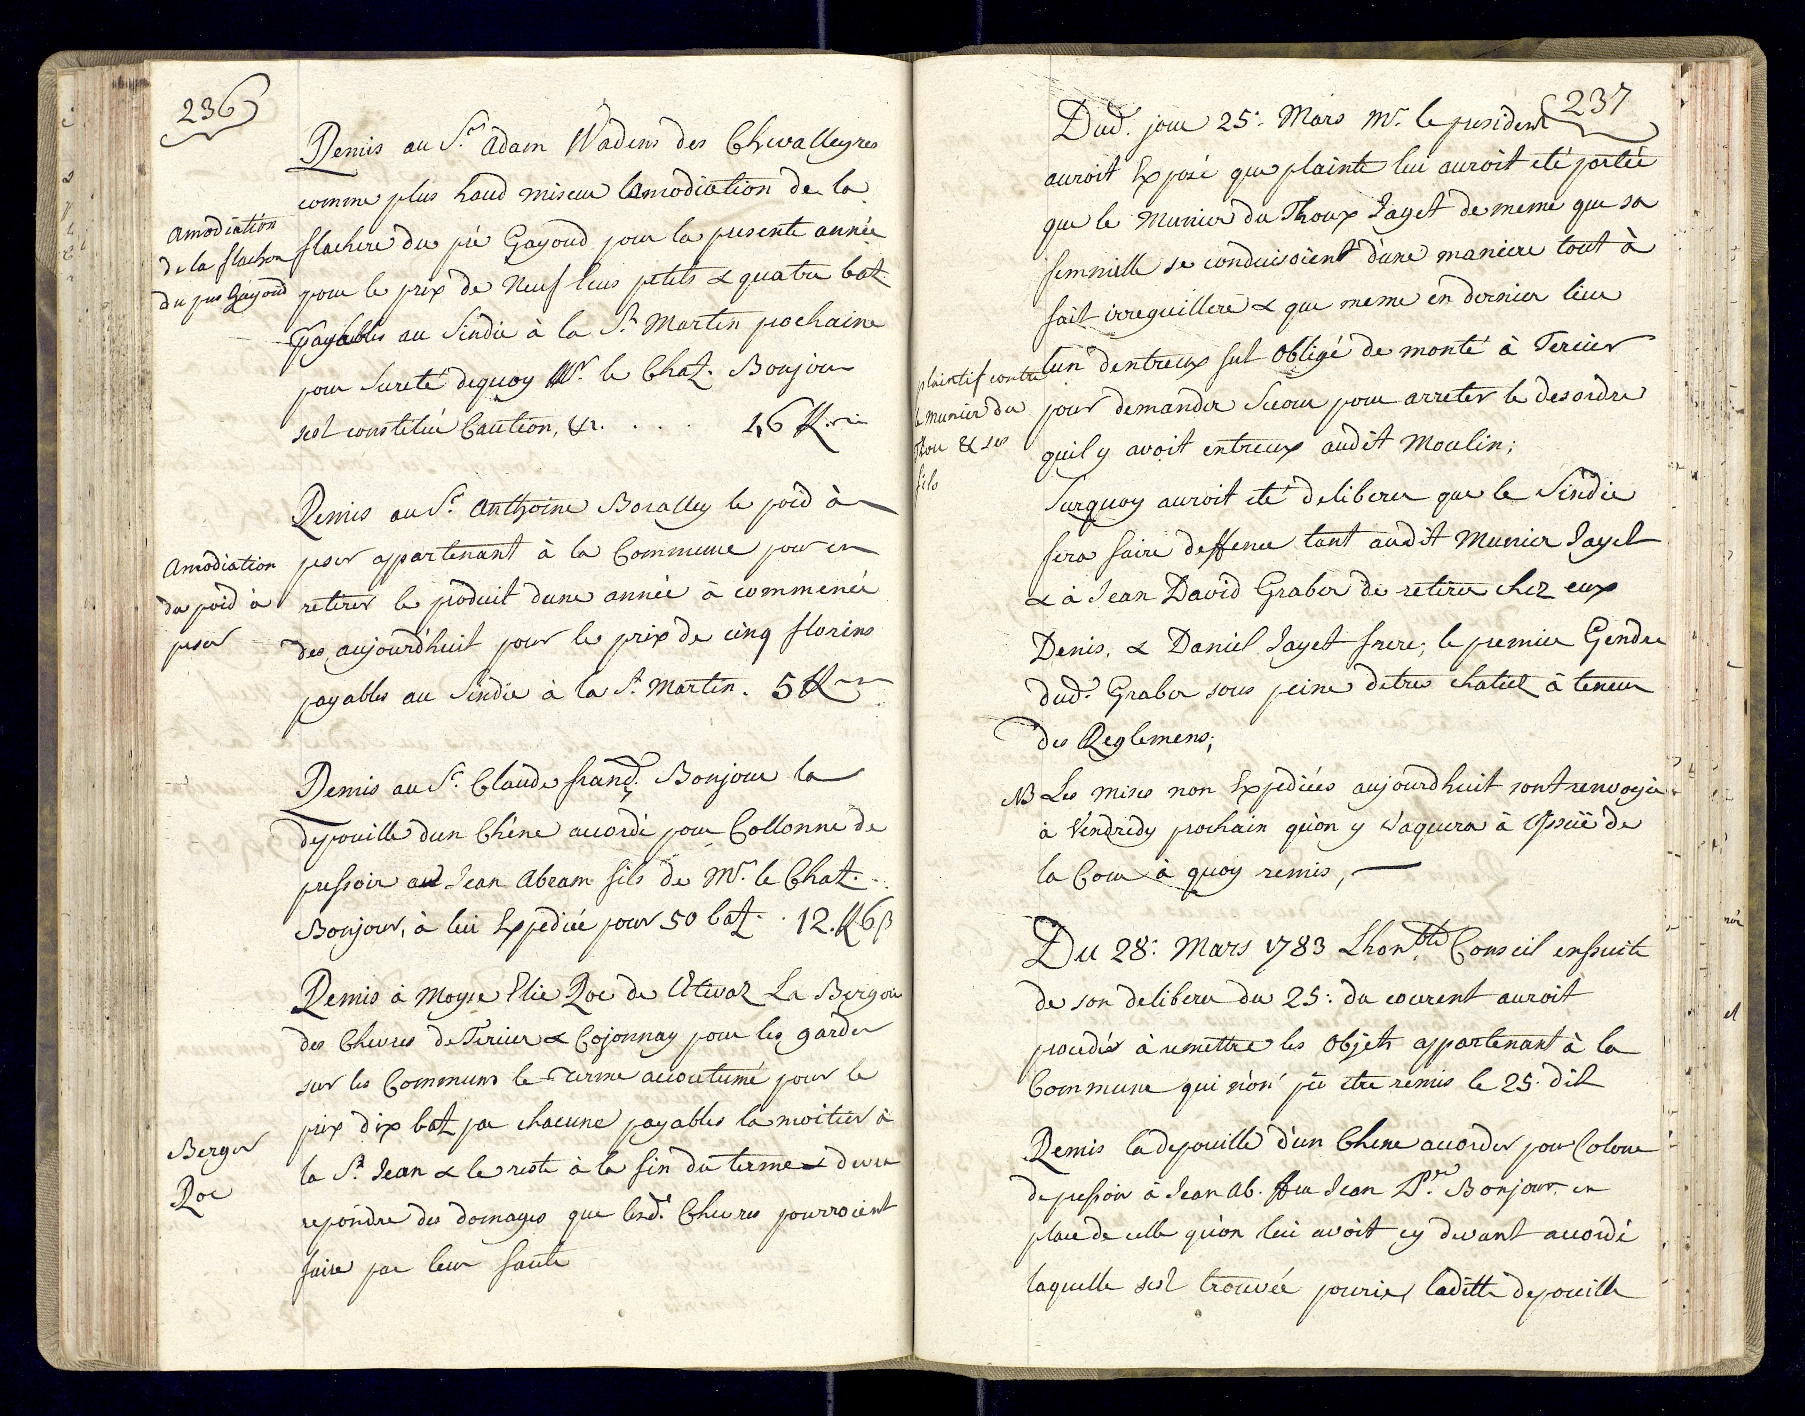 236
Remis au S.r Adam Wadens des Chevalleyres
comme plus haud miseur lamodiation de la
flachere du pré Gayoud pour la presente année
pour le prix de Neuf leus petits & quatre batz
payables au Sindic à la S.t Martin prochaine
pour sureté dequoy M.r le Chat. Bonjour
sest constitué Caution, &c. . . . 46 ff.
Amodiation
de la flachere
du pre Gayoud
Remis au S.r Anthoine Boralley le poid à
peser appartenant à la Commune pour en
retirer le produit dune année à commencé
des aujourdhuit pour le prix de cinq florins
payables au Sindic à la S.t Martin. 5 ff
Amodiation
du poid à
peser
Remis au S.r Claude franç. Bonjour la
depouille dun Chêne accordé pour Collonne de
pressoir au Jean Abram fils de M.r le Chat.
Bonjour, à lui Expediée pour 50 batz. . 12. ff 6 β
Remis à Moyse Elie Roc de L'Etivaz La Bergerie
des Chevres de Tercier & Cojonnay pour les garder
sur les Communs le Terme accoutumé pour le
prix dix batz par chacune payables la moitier à
la S.t Jean & le reste à la fin du terme & devra
repondre des domages que lesd.t Chevres pourroient
faire par leur faute
Berger
Roc
237
Dud. jour 25.e Mars M.r le president
auroit Exposé que plainte lui auroit eté portée
que le Munier du Thoux Jayet de meme que sa
femmille se conduisoient d'une maniere tout à
fait irreguillere & que meme en dernier lieu
lun d'entreux fut Obligé de monté à Tercier
pour demander Secour pour arreter le desordre
quil y avoit entreux audit Moulin;
Surquoy auroit eté deliberer que le Sindic
fera faire deffence tant audit Munier Jayet
& à Jean David Graber de retirer chez eux
Denis, & Daniel Jayet frere; le premier Gendre
dud.t Graber sous peine detres chatiez à teneur
des Reglemens;
plaintif contre
le munier du
Thou & ses
fils
NB Les mises non Expediées aujourdhuit sont renvoyée
à Vendredy prochain qu'on y vaquera à l'Issuë de
la Cour à quoy remis,
Du 28.e Mars 1783 Lhon.ble Conseil ensuite
de son deliberer du 25.e du courent auroit
procedés à remettre les Objets appartenant à la
Commune qui n'on pû etre remis le 25. dit
Remis la depouille d'un Chene accorder pour Colone
de pressoir à Jean Ab. ffeu Jean P.re Bonjour en
place de celle qu'on lui avoit cy devant accordé
laquelle sest trouvée pourie, laditte depouille